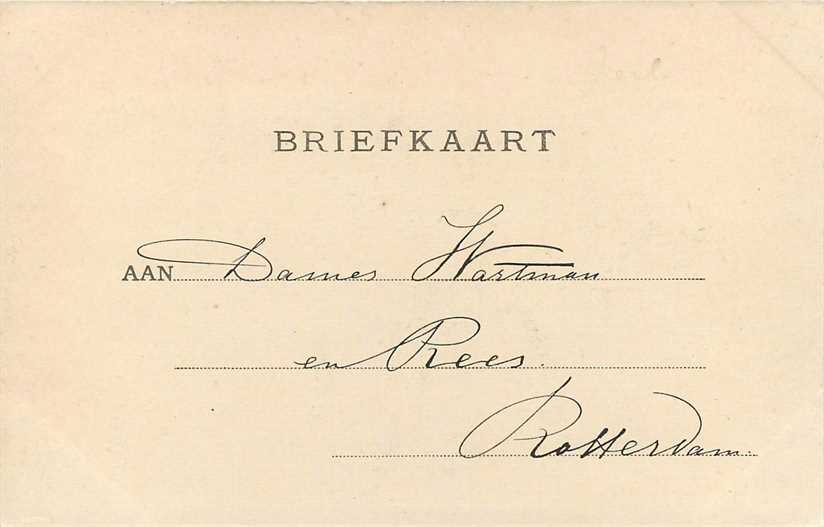 BRIEFKAART
AAN Dames Wartman
en Rees.
Rotterdam.